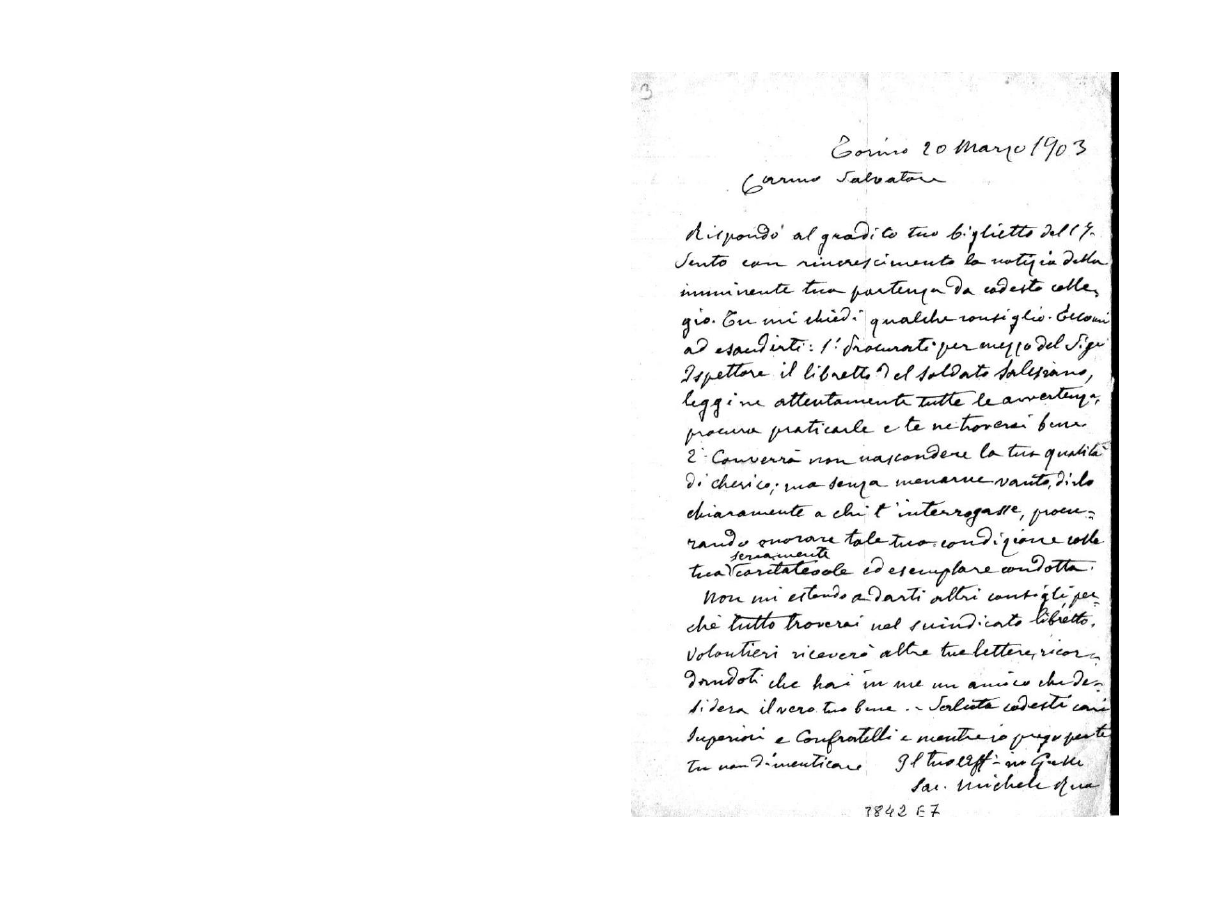 3
Torino 20 Marzo 1903
Car.mo Salvatore
Rispondo al gradito tuo biglietto del 17.
Sento con rincrescimento la notizia della
imminente tua partenza da codesto colle,
gio. Tu mi chiedi qualche consiglio. Eccomi
ad esaudirti: 1.° Procurati per mezzo del Sigr
Ispettore il libretto del soldato Salesiano,
leggine attentamente tutte le avvertenze,
procura praticarle e te ne troverai bene
2° Converrà non nascondere la tua qualità
di cherico; ma senza menarne vanto, dirlo
chiaramente a chi t'interrogasse, procu=
rando onorare tale tua condizione colla
seriamente
tua caritatevole ed esemplare condotta.
Non mi estendo a darti altri consigli per
chè tutto troverai nel suindicato libretto.
Volontieri riceverò altre tue lettere, ricor=
dandoti che hai in me un amico che de=
sidera il vero tuo bene. - Saluta codesti cari
Superiori e Confratelli e mentre io prego per te
tu non dimenticare Il tuo aff.mo in G.
Sac. Michele Rua
3842 E7